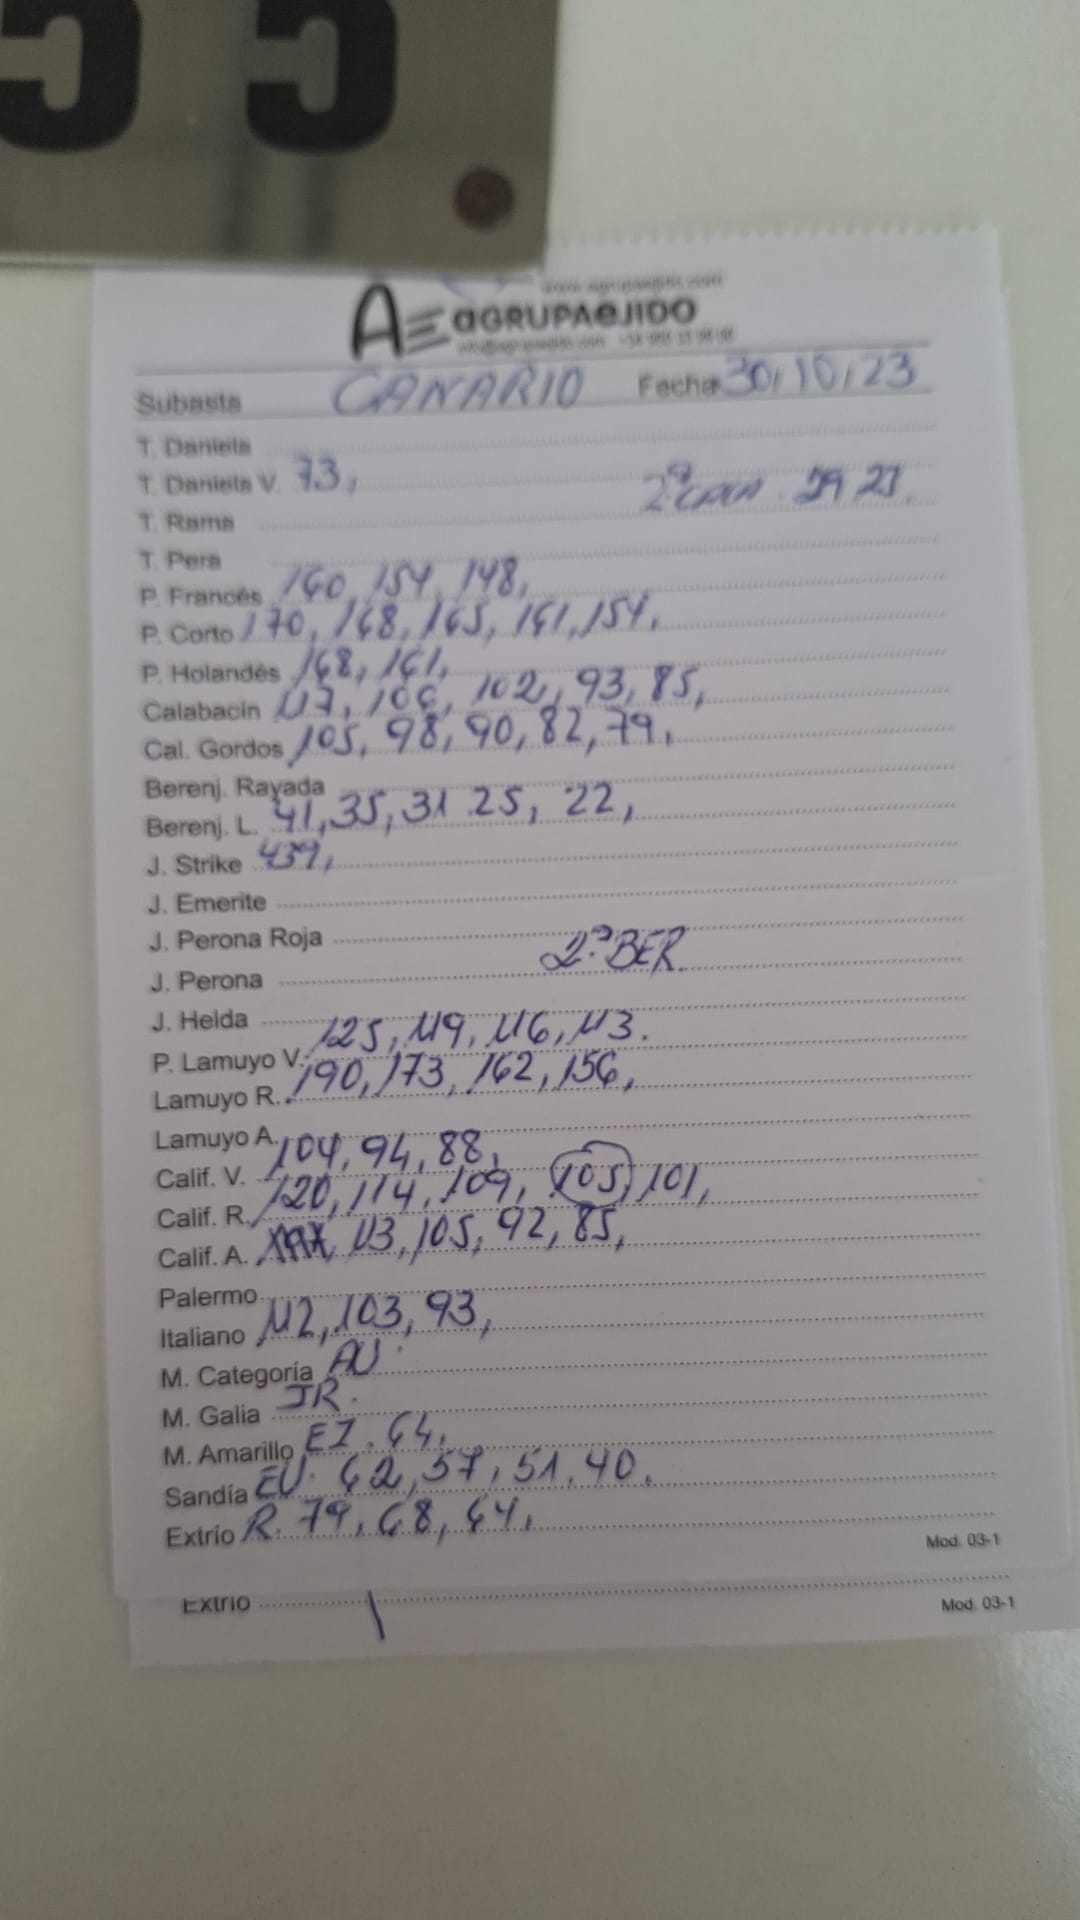 55
www.agrupaejido.com
AE aGRUPAeJIDO
Subasta CANARIO Fecha 30/10/23
T. Daniela
T. Daniela V. 73,
2ª 29 23.
T. Rama
T. Pera
P. Francés 160, 154, 148,
P. Corto 170, 168, 165, 161, 154,
P. Holandés 168, 161,
Calabacín 117, 106, 102, 93, 85,
Cal. Gordos 105, 98, 90, 82, 79,
Berenj. Rayada
Berenj. L. 41, 35, 31 25, 22,
J. Strike 439,
J. Emerite
J. Perona Roja
2ª BER.
J. Perona
J. Helda
P. Lamuyo V. 125, 119, 116, 113.
Lamuyo R. 190, 173, 162, 156,
Lamuyo A.
Calif. V. 104, 94, 88,
Calif. R. 120, 114, 109, 105, 101,
Calif. A. 113, 105, 92, 85,
Palermo
Italiano 112, 103, 93,
M. Categoría AU.
M. Galia JR.
M. Amarillo EI. 64,
Sandía EU. 62, 57, 51. 40.
Extrío R. 79, 68, 64,
Mod. 03-1
Extrío
Mod. 03-1